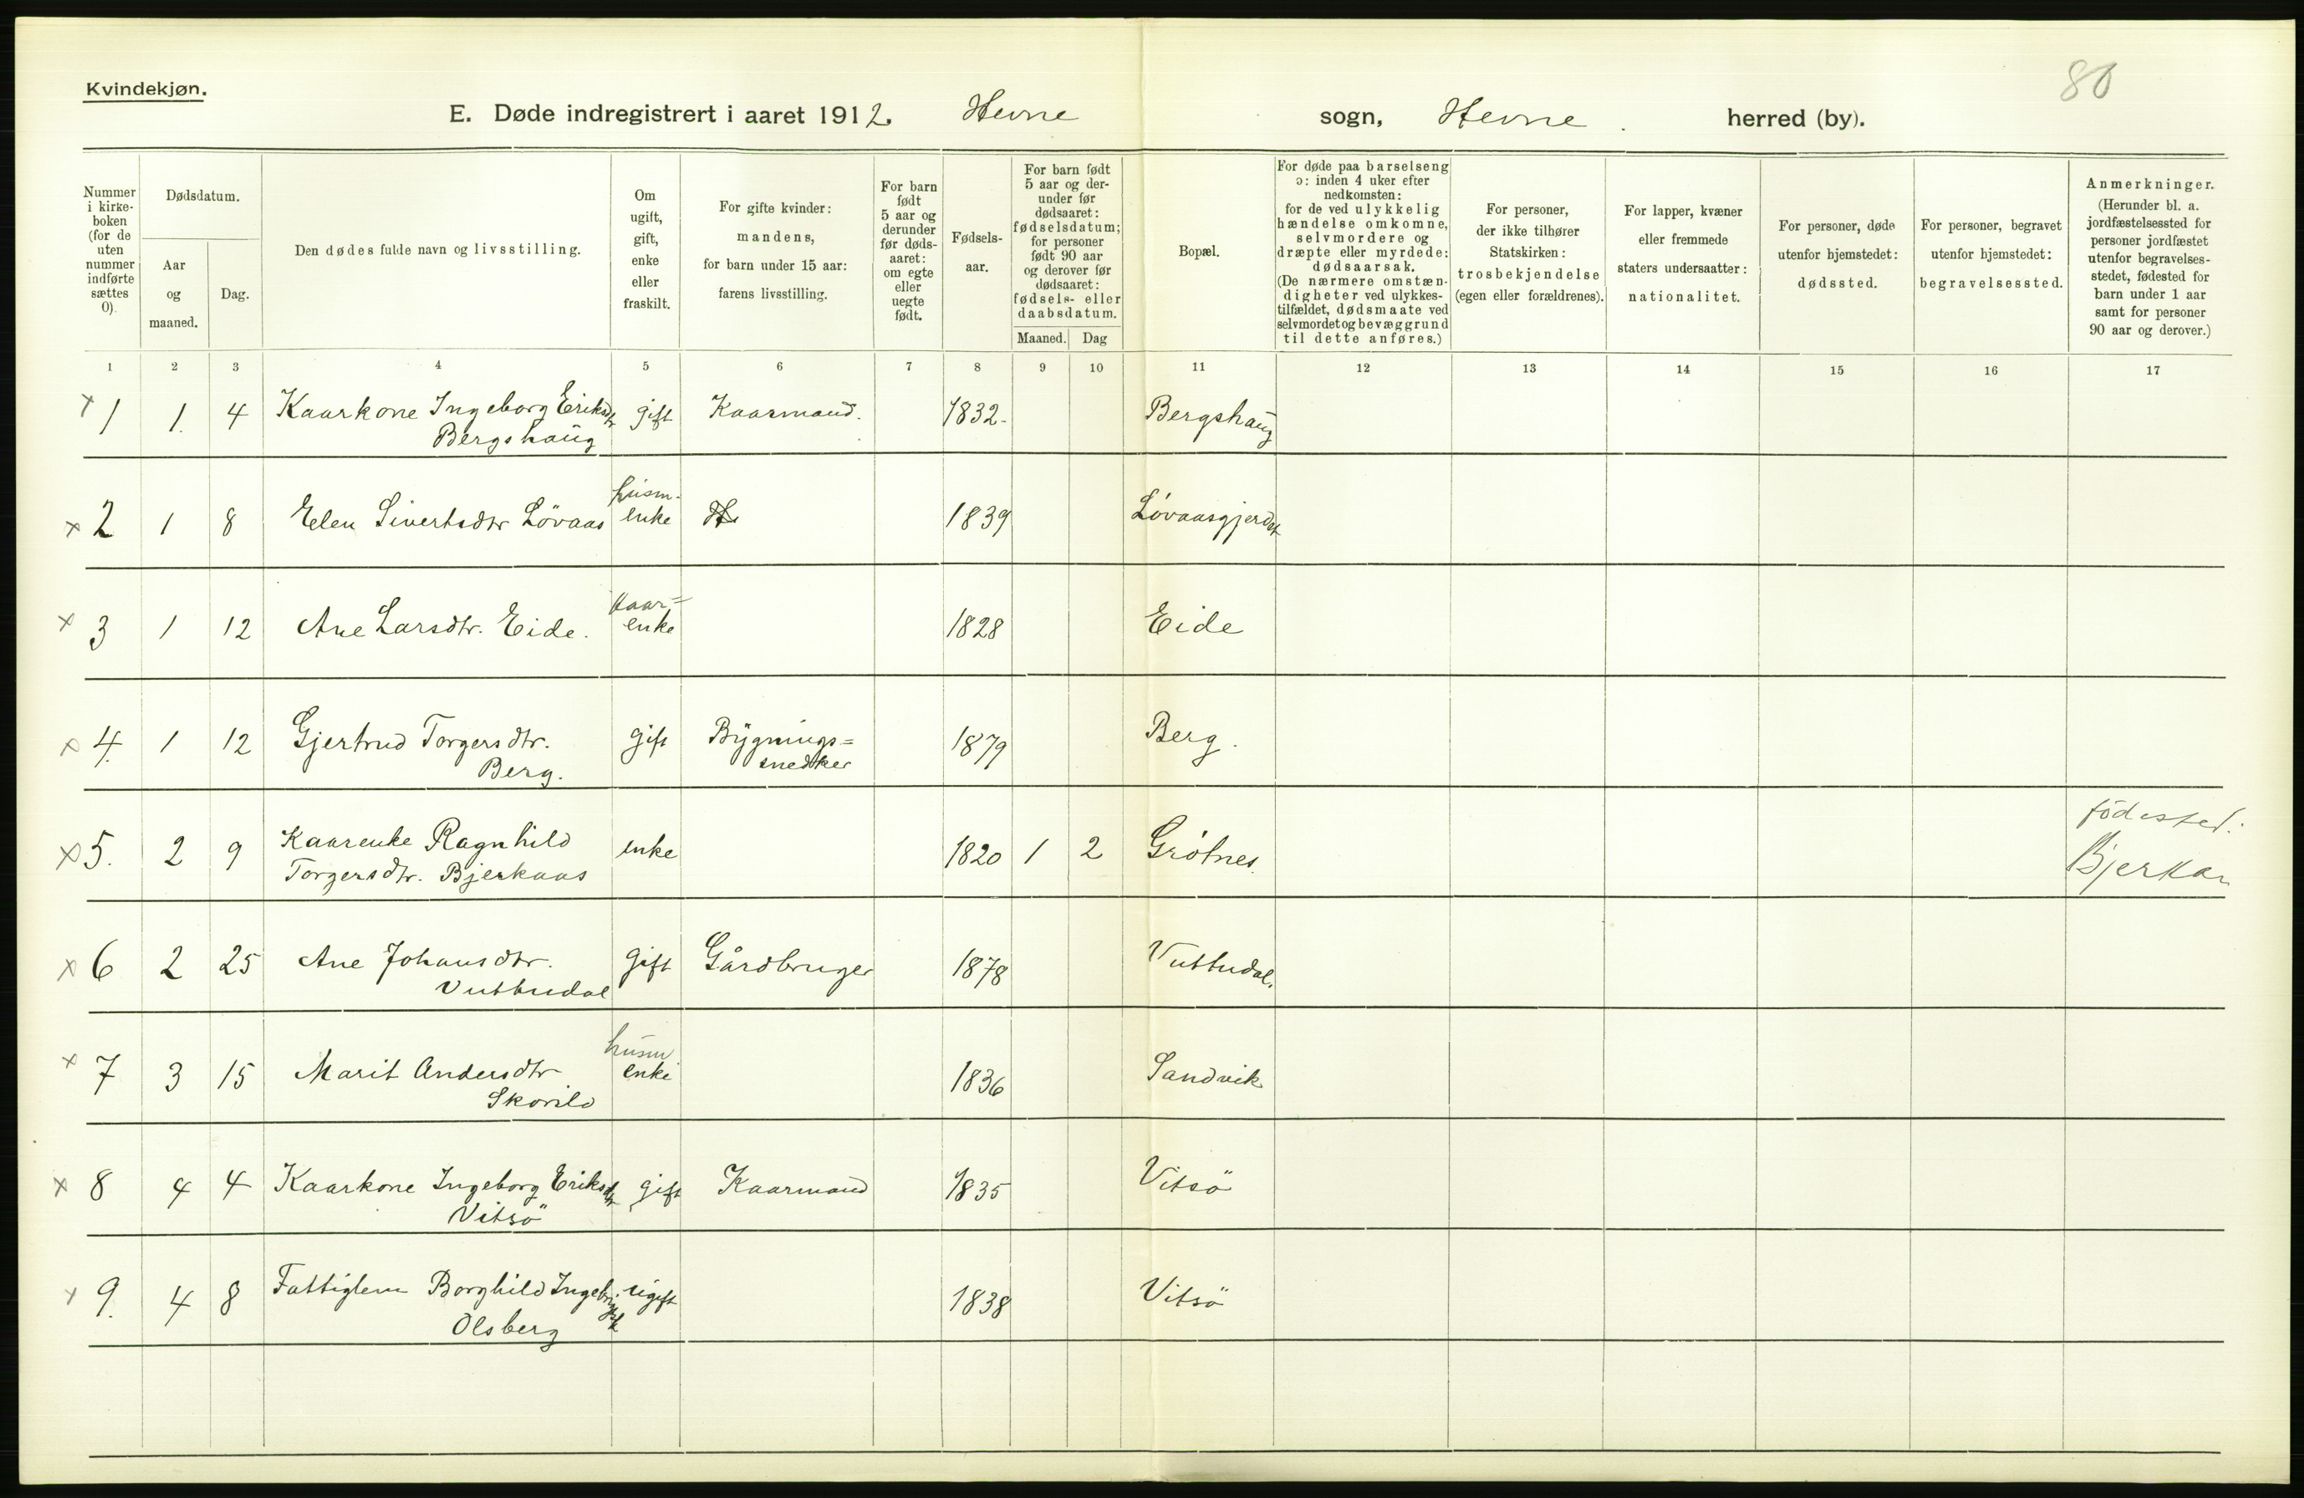 80
Kvindekjøn.
E. Døde indregistrert i aaret 1912. Hevne sogn, Hevne herred (by).
Nummer i kirke-boken (for de uten nummer indførte sættes 0).
Dødsdatum.
Aar og maaned.
Dag.
Den dødes fulde navn og livsstilling.
Om ugift, gift, enke eller fraskilt.
For gifte kvinder: mandens, for barn under 15 aar: farens livsstilling.
For barn født 5 aar og derunder før døds-aaret: om egte eller uegte født.
Fødsels-aar.
For barn født 5 aar og der-under før dødsaaret: fødselsdatum; for personer født 90 aar og derover før dødsaaret: fødsels- eller daabsdatum.
Maaned. Dag
Bopæl.
For døde paa barselseng ɔ: inden 4 uker efter nedkomsten: for de ved ulykkelig hændelse omkomne, selvmordere og dræpte eller myrdede: dødsaarsak. (De nærmere omstæn-digheter ved ulykkes-tilfældet, dødsmaate ved selvmordet og bevæggrund til dette anføres.)
For personer, der ikke tilhører Statskirken: trosbekjendelse (egen eller forældrenes).
For lapper, kvæner eller fremmede staters undersaatter: nationalitet.
For personer, døde utenfor hjemstedet: dødssted.
For personer, begravet utenfor hjemstedet: begravelsessted.
Anmerkninger. (Herunder bl. a. jordfæstelsessted for personer jordfæstet utenfor begravelses-stedet, fødested for barn under 1 aar samt for personer 90 aar og derover.)
1 2 3 4 5 6 7 8 9 10 11 12 13 14 15 16 17
x 1 1. 4 Kaarkone Ingeborg Eriksdtr gift Kaarmand. 1832. Bergshaug
Bergshaug
husm-
x 2 1 8 Elen Sivertsdtr Lövaas enke 1839 Lövaasgjerdet
Kaar=
x 3 1 12 Ane Larsdtr. Eide. enke 1828 Eide
x 4. 1 12 Gjertrud Torgersdtr. gift Bygnings= 1879 Berg.
Berg. snedker
födested:
x 5. 2 9 Kaarenke Ragnhild enke 1820 1 2 Grötnes.
Torgersdtr. Bjerkaas
x 6 2 25 Ane Johansdtr. gift Gårdbruger 1878 Vuttudal.
Vuttudal
husm
x 7 3 15 Marit Andersdtr enke 1836 Sandvik
Skorild
x 8 4 4 Kaarkone Ingeborg Eriksdtr gift Kaarmand 1835 Vitsö
Vitsö
x 9. 4 8 Fattiglem Borghild ugift 1838 Vitsö
Olsberg